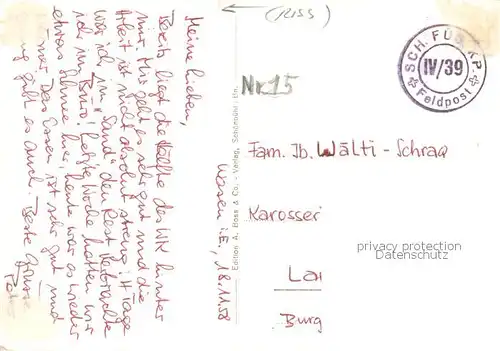 (RISS)
Nr. 15
SCH. FÜS. KP.
IV/39
Feldpost
Wasen i.E., 18.11.58
Meine Lieben,
Bereits liegt die Hälfte des WK hinter
mir. Mir geht es sehr gut und die
Arbeit ist nicht absolut streng. 4 Tage
war ich im "Sand" den Rest verbrachte
ich im Büro. Letzte Woche hatten wir
etwas Sonne hier, heute war es wieder
Das Essen ist sehr gut und
gibt es auch. Beste Grüsse
Edition A. Boss & Co. - Verlag, Schönbühl - Bn.
Fam. Jb. Wälti - Schra
Karosser
La
Burg
privacy protection
Datenschutz